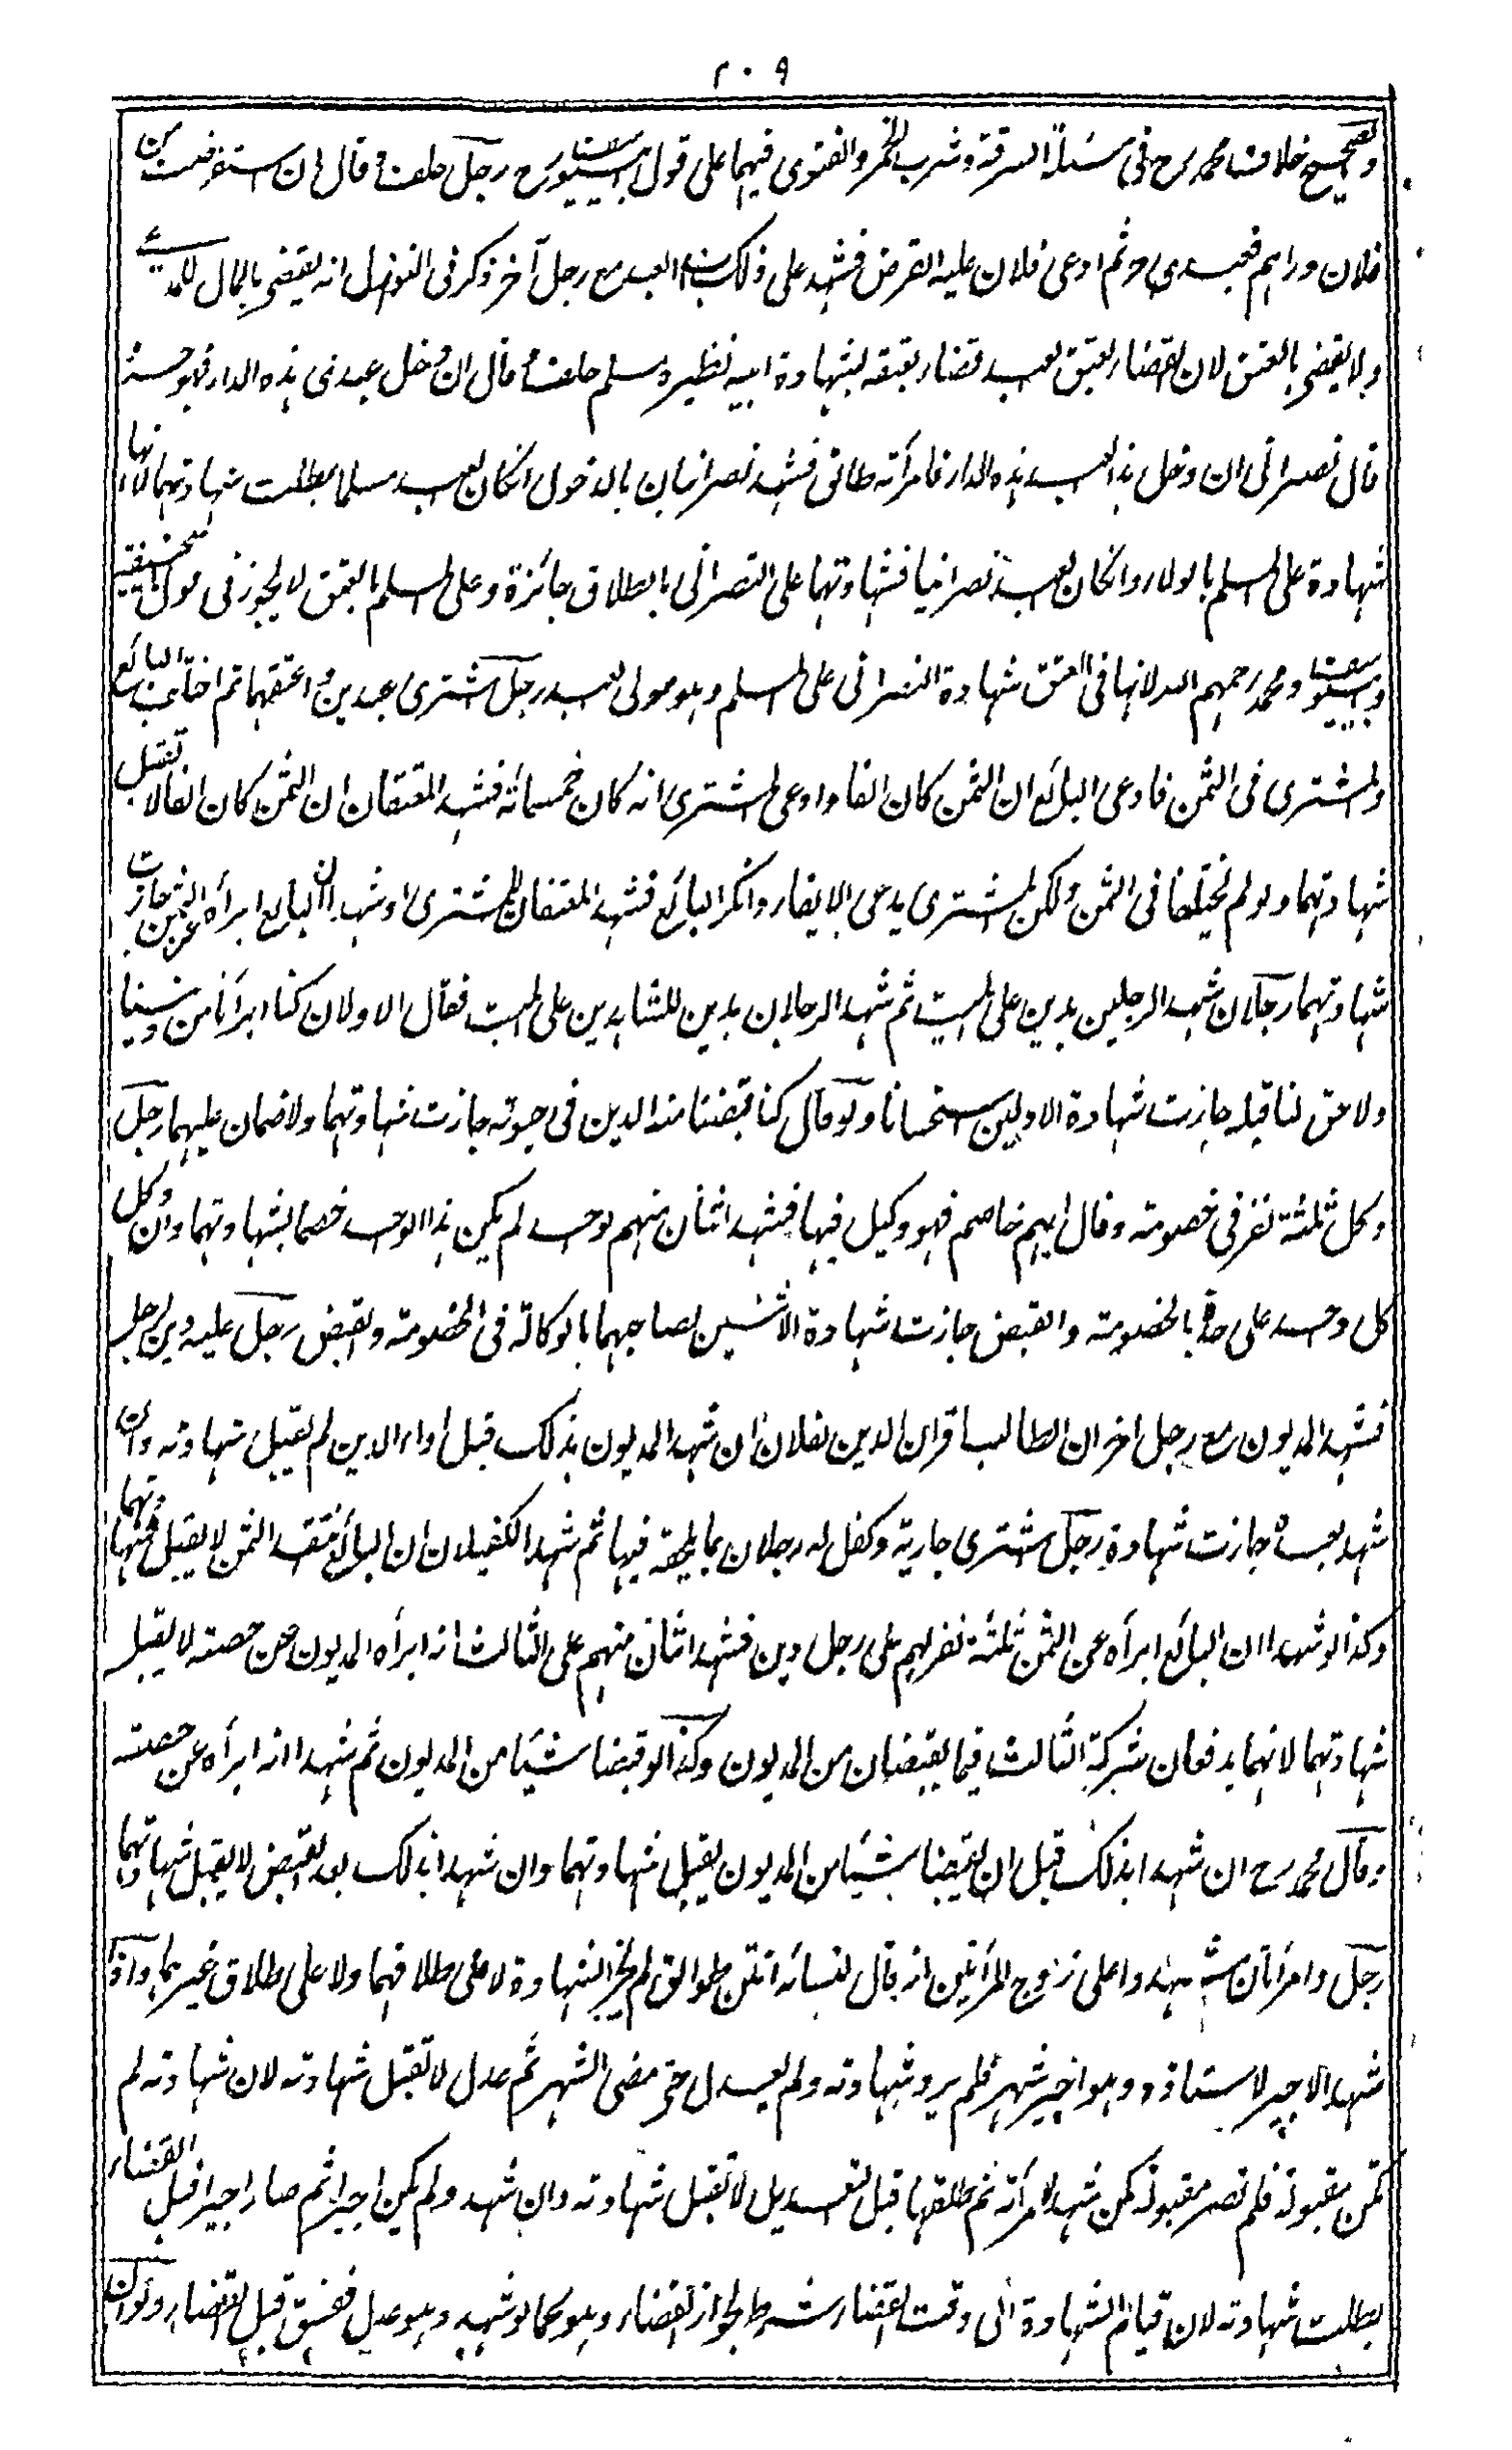 ٢٠٩
والصحيح خلافا محمد رح فى مسئلة السرقة وشرب الخمر والفتوى فيهما على قول ابي يوسف رح رجل حلف وقال ان استقرضت من
فلان دراهم فعبدى حر ثم ادعى فلان عليه القرض فشهد على ذلك ابو العبد مع رجل آخر ذكر فى النوازل انه يقضى بالمال للمدعى
ولا يقضى بالعتق لان القضاء بعتق العبد قضاء بعتقه بشهادة ابيه نظيره مسلم حلف وقال ان دخل عبدى هذه الدار فهو حر
قال نصرانى ان دخل هذا العبد هذه الدار فامرأته طالق فشهد نصرانيان بالدخول انكان العبد مسلما بطلت شهادتهما لانها
شهادة على المسلم بالولاء وانكان العبد نصرانيا فشهادتهما على النصرانى بالطلاق جائزة وعلى المسلم بالعتق لا يجوز فى قول ابيحنيفة
وابى يوسف ومحمد رحمهم الله لانها فى العتق شهادة النصرانى على المسلم وهو مولى العبد رجل اشترى عبدين واعتقهما ثم اختلف البائع
والمشترى فى الثمن فادعى البائع ان الثمن كان الفا وادعى المشترى انه كان خمسمائة فشهد المعتقان ان الثمن كان الفا لا تقبل
شهادتهما ولو لم يختلفا فى الثمن ولكن المشترى يدعى الايفاء وانكر البائع فشهد المعتقان للمشترى او شهدا ان البائع ابرأه عن الثمن جازت
شهادتهما رجلان شهدا لرجلين بدين على الميت ثم شهد الرجلان بدين للشاهدين على الميت فقال الاولان كنا ابرأنا من ديننا
ولا حق لنا قبله جازت شهادة الاولين استحسانا ولو قال كنا قبضنا منه الدين فى حيوته جازت شهادتهما ولا ضمان عليهما رجل
وكل ثلثة نفر فى خصومته وقال ايهم خاصم فهو وكيل فيها فشهد اثنان منهم لواحد لم يكن هذا الواحد خصما بشهادتهما وان وكل
كل واحد على حدة بالخصومة والقبض جازت شهادة الاثنين لصاحبهما بالوكالة فى الخصومة والقبض رجل عليه دين لرجل
فشهد المديون مع رجل اخر ان الطالب اقر ان الدين لفلان ان شهد المديون بذلك قبل اداء الدين لم تقبل شهادته وان
شهد بعده جازت شهادة رجل اشترى جارية وكفل له رجلان بما يلحقه فيها ثم شهد الكفيلان ان البائع نقد الثمن لا يقبل شهادتهما
وكذا لو شهدا ان البائع ابرأه عن الثمن ثلثة نفر لهم على رجل دين فشهد اثنان منهم على الثالث انه ابرأه المديون عن حصته لا يقبل
شهادتهما لانهما يدفعان شركة الثالث فيما يقبضان من المديون وكذا لو قبضا شيئا من المديون ثم شهدا انه ابرأه عن حصته
وقال محمد رح ان شهدا بذلك قبل ان يقبضا شيئا من المديون يقبل شهادتهما وان شهدا بذلك بعد القبض لا يقبل شهادتهما
رجل وامرأتان شهدوا على زوج المرأتين انه قال لنسائه انتن طوالق لم يجز الشهادة لا على طلاقهما ولا على طلاق غيرهما واذا
شهد الاجير لاستاذه وهو اجير شهر فلم يرد شهادته ولم يعدل حتى مضى الشهر ثم عدل لا تقبل شهادته لان شهادته لم
تكن مقبولة فلم تصر مقبولة كمن شهد لامرأته ثم طلقها قبل التعديل لا تقبل شهادته وان شهد ولم يكن اجيرا ثم صار اجيرا قبل القضاء
بطلت شهادته لان قيام الشهادة الى وقت القضاء شرط لجواز القضاء وهو كما لو شهد وهو عدل ففسق قبل القضاء ولو ان